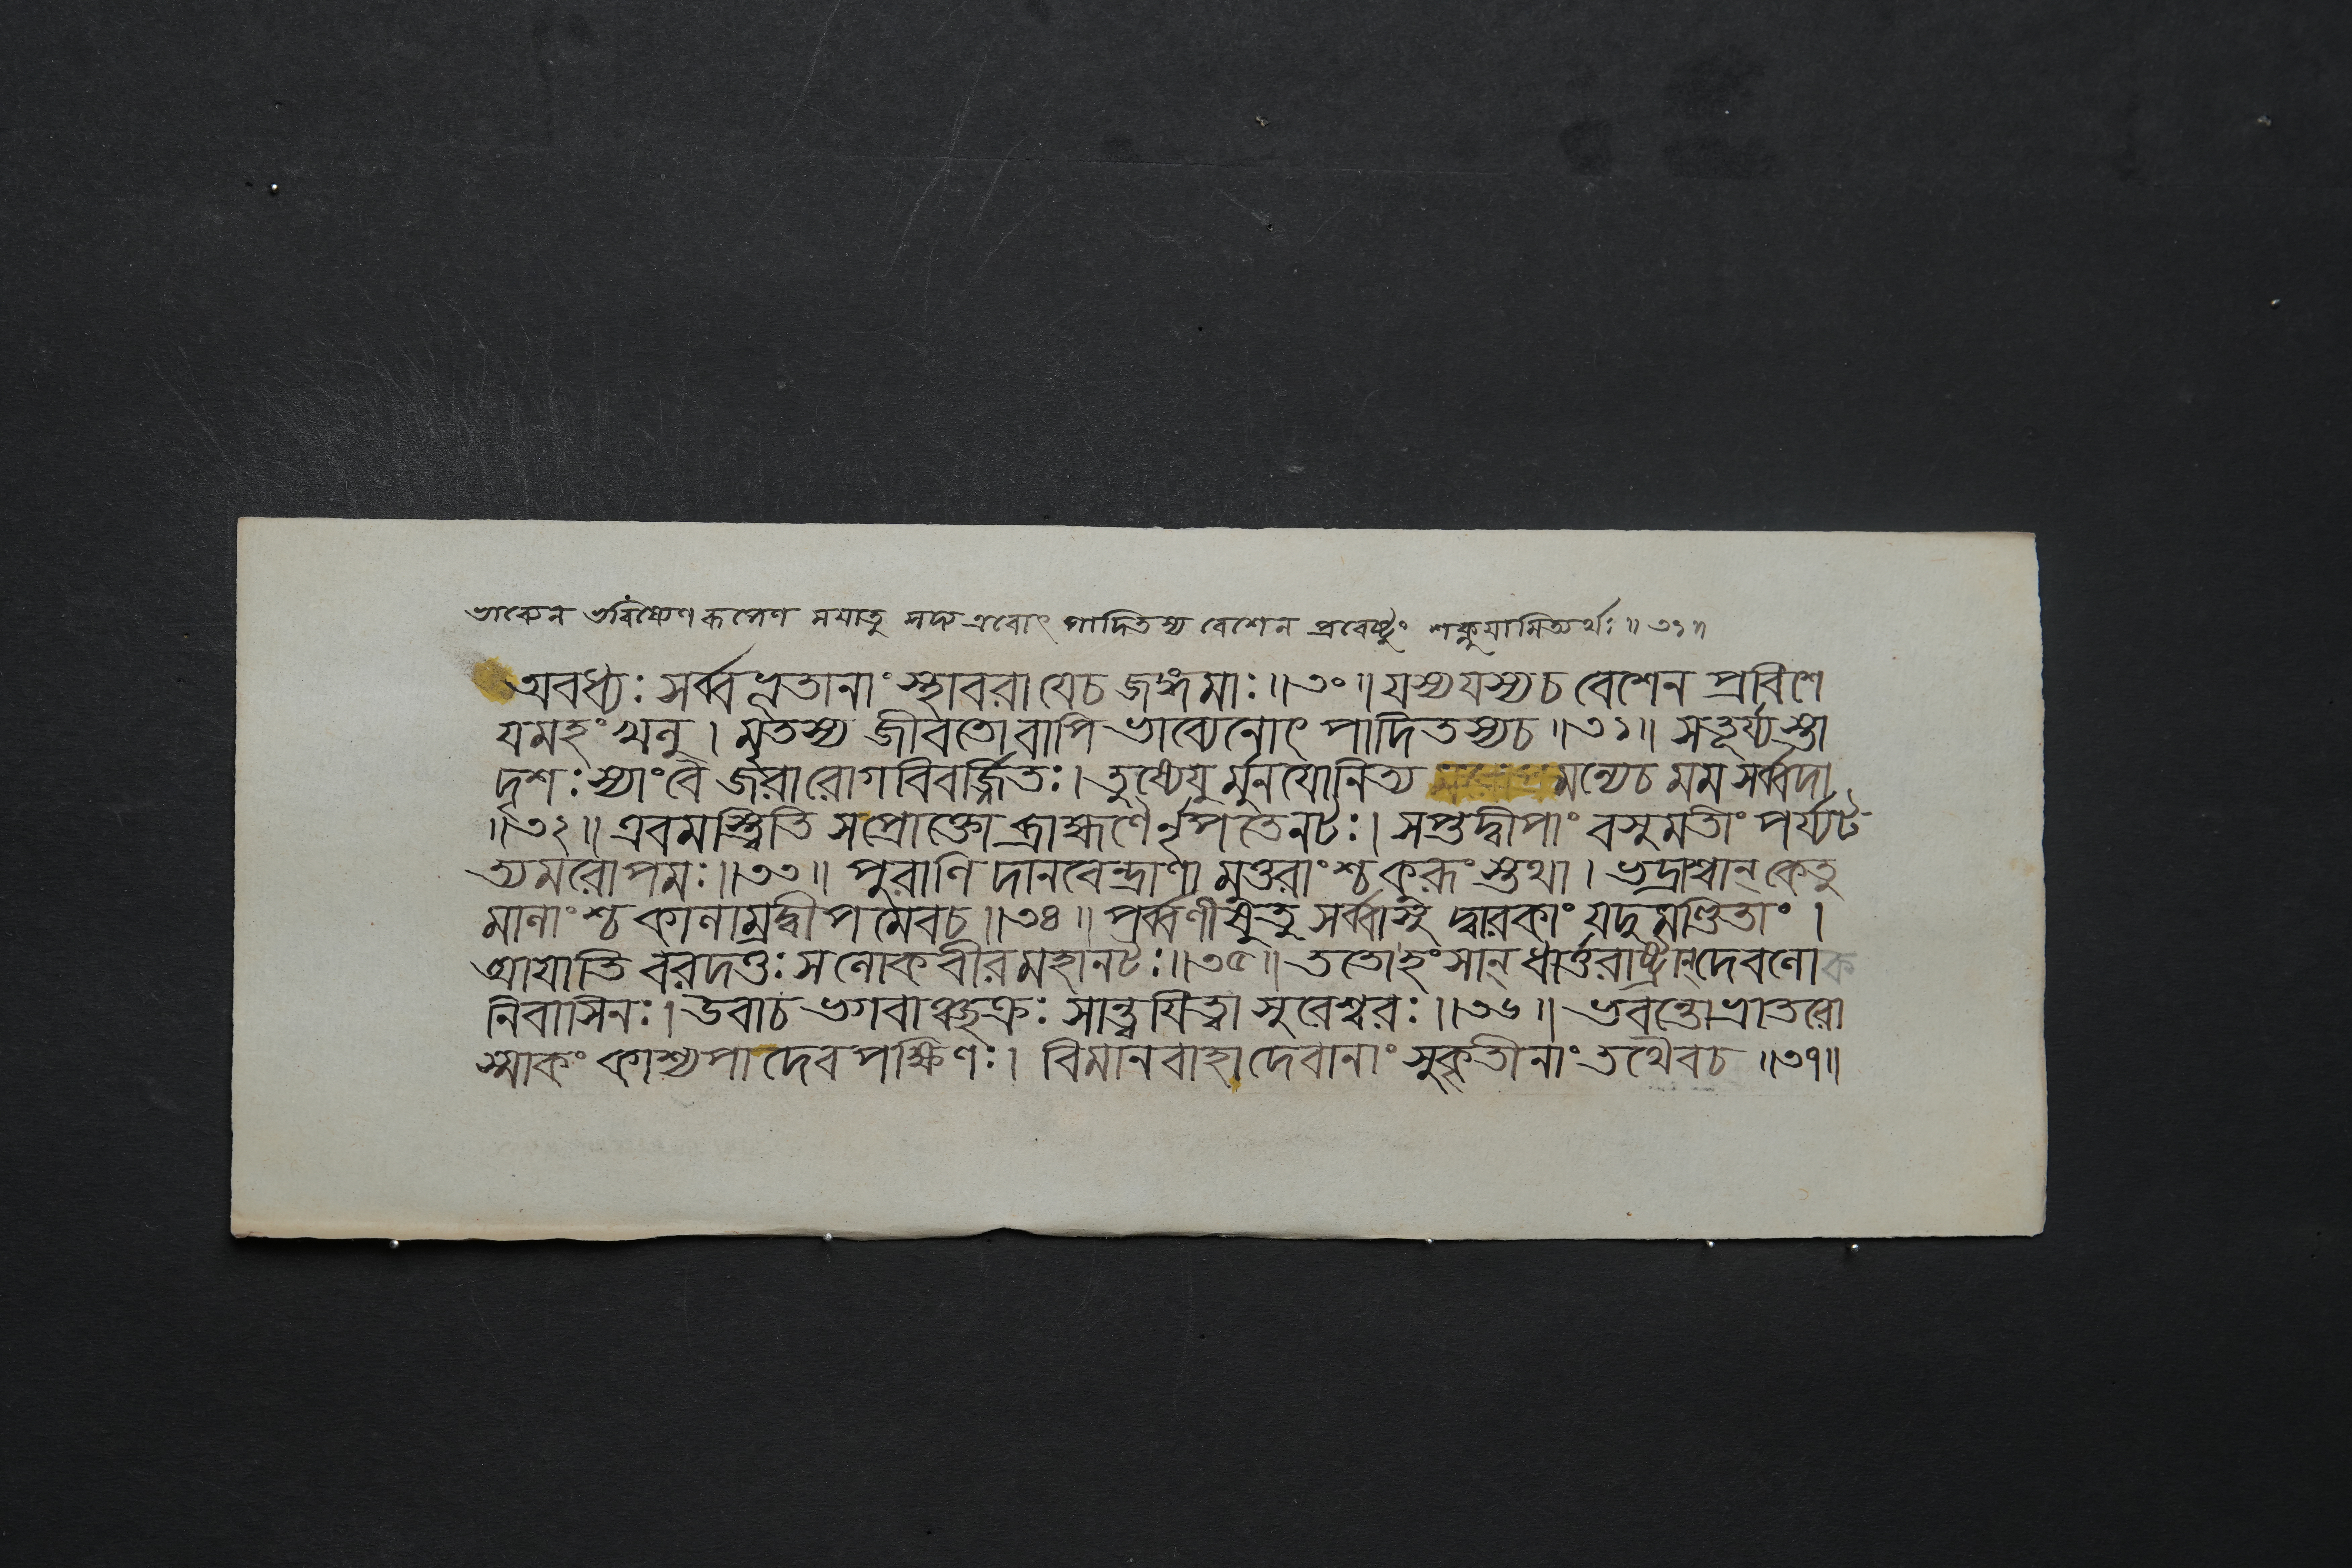 ভাব্যেন ভবিষ্যেণ রূপেণ ময়াতু সদ্য এবোৎ পাদিতস্য বেশেন প্রবেষ্টুং শক্নুয়ামিত্যর্থঃ ॥ ৩১॥
অবধ্যঃ সর্ব্বভূতানাং স্থাবরা যেচ জঙ্গমাঃ ॥৩০॥ যস্য যস্যচ বেশেন প্রবিশে
যমহং খলু । মৃতস্য জীবতো বাপি ভাব্যেনোৎ পাদিতস্যচ ॥৩১॥ সতূর্য্যস্তা
দৃশঃ স্যাং বৈ জরারোগবিবর্জ্জিতঃ । তুষ্যেয়ু র্মুনয়োনিত্য মন্যেচ মম সর্ব্বদা
॥৩২॥ এবমস্ত্বিতি সপ্রোক্তো ব্রাহ্মণৈর্নৃপতে নটঃ । সপ্তদ্বীপাং বসুমতীং পর্য্যট
ত্যমরোপমঃ ॥৩৩॥ পুরাণি দানবেন্দ্রাণা মুত্তরাংশ্চ কুরূং স্তথা । ভদ্রাশ্বান্ কেতু
মালাংশ্চ কালাম্রদ্বীপমেবচ ॥৩৪॥ পর্ব্বণীষুতু সর্ব্বাসু দ্বারকাং যদুমণ্ডিতাং ।
আয়াতি বরদত্তঃ সলোকবীরমহানটঃ ॥৩৫॥ ততোহংসান্ ধার্ত্তরাষ্ট্রান্দেবলোক
নিবাসিনঃ । উবাচ ভগবাঞ্ছক্রঃ সান্ত্বয়িত্বা সুরেশ্বরঃ ॥৩৬॥ ভবন্তোভ্রাতরো
স্মাকং কাশ্যপা দেবপক্ষিণঃ । বিমানবাহা দেবানাং সুকৃতীনাং তথৈবচ ॥৩৭॥